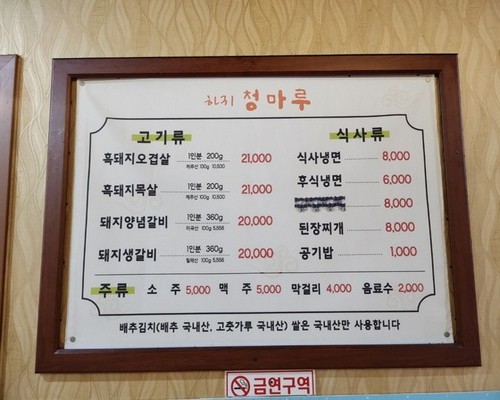 하귀 청마루
고기류
흑돼지오겹살 1인분 200g 21,000
제주산 100g 10,500
흑돼지목살 1인분 200g 21,000
제주산 100g 10,500
돼지양념갈비 1인분 360g 20,000
100g 5,556
돼지생갈비 1인분 360g 20,000
100g 5,556
식사류
식사냉면 8,000
후식냉면 6,000
8,000
된장찌개 8,000
공기밥 1,000
주류 소 주 5,000 맥 주 5,000 막걸리 4,000 음료수 2,000
배추김치(배추 국내산, 고춧가루 국내산) 쌀은 국내산만 사용합니다
금연구역